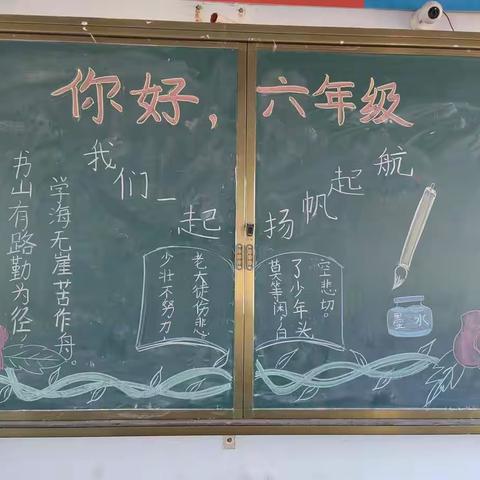 你好，六年级
我们一起扬帆起航
书山有路勤为径，
学海无崖苦作舟。
少壮不努力，
老大徒伤悲
莫等闲，白
了少年头，
空悲切。
墨水